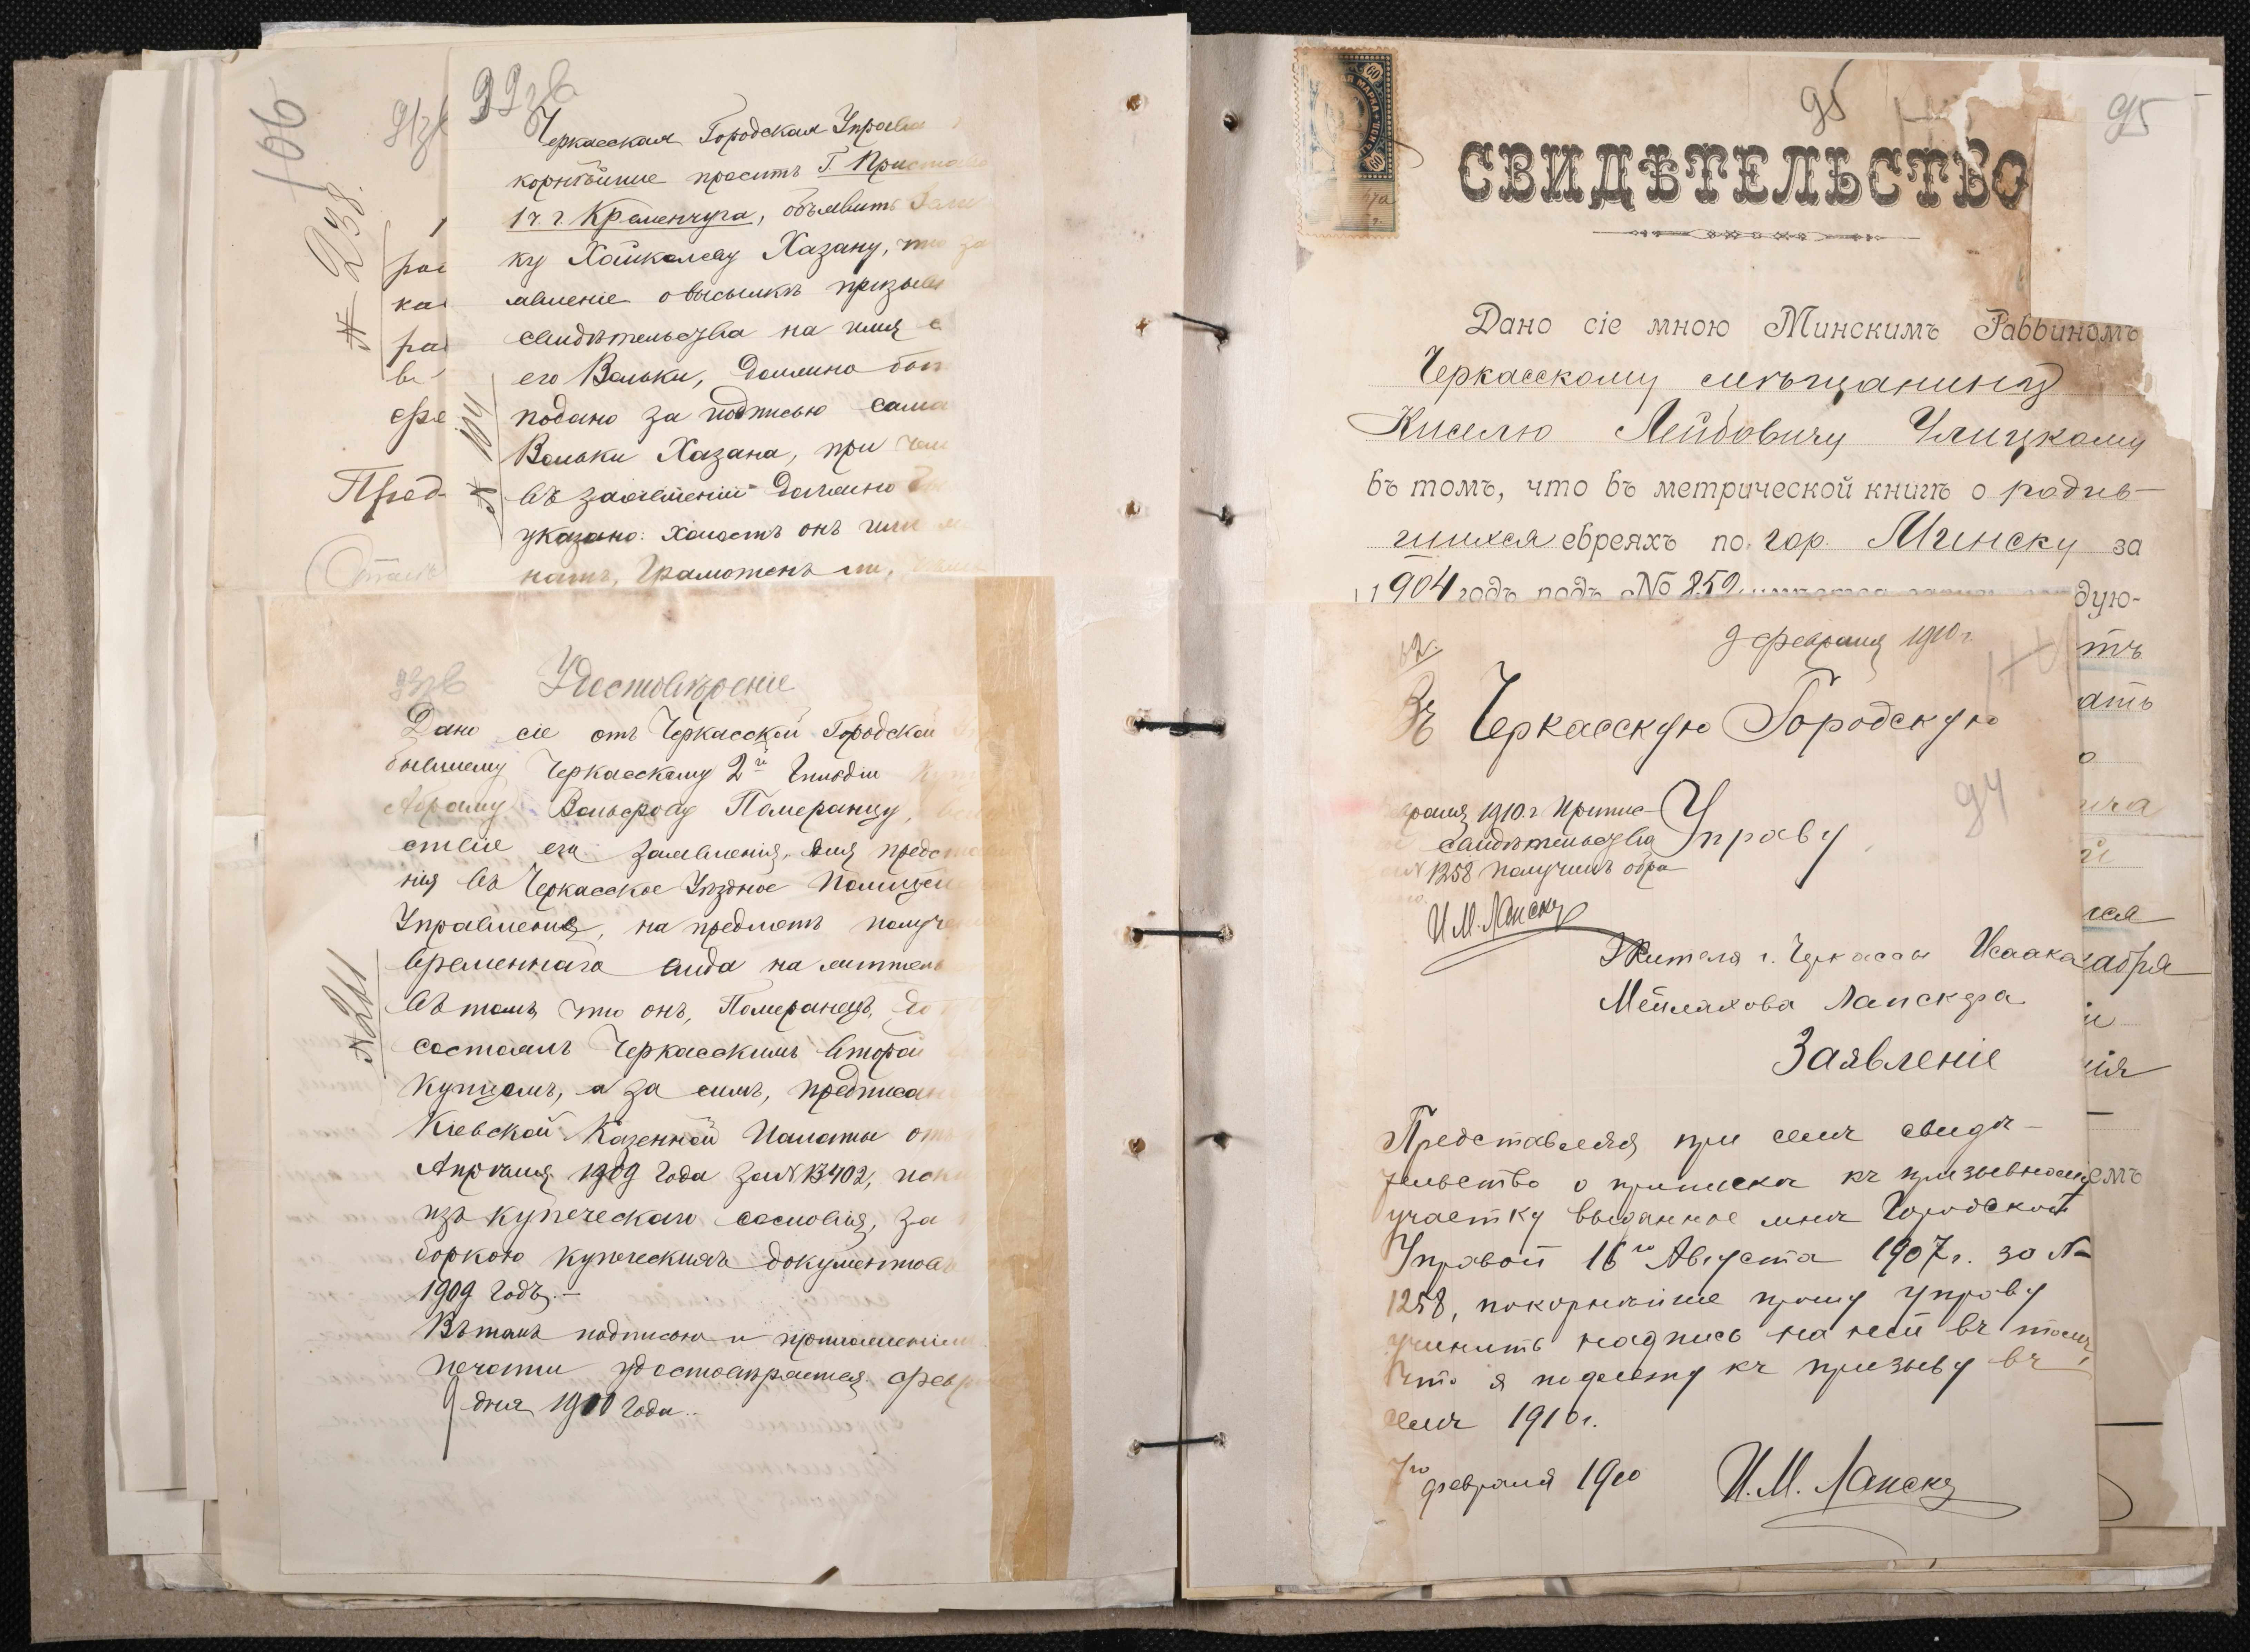 106
91зв
№ 238.
рас
ка
ра
Пред-
92зв
Черкасская Городская Управа
корнѣйше проситъ Г. Пристава
1 ч. г. Кременчуга, объявить Зали
ку Хайкелеву Хазану, что за
явленіе о высылкѣ призыв
свидѣтельства на имя с
его Вольки, должно быт
подано за подписью сама
Вольки Хазана, при чем
въ заявленіи должно бы
указано: холостъ онъ или
натъ, грамотенъ ли,
93зв
Удостовѣреніе
Дано сіе отъ Черкасской Городской
бывшему Черкасскому 2й гильдіи
Абраму Вольфову Померанцу,
ствіе его заявленія, для предста
нія въ Черкасское Уѣздное Полицей
Управленіе, на предметъ получе
временнаго вида на житель
№ 211
въ томъ что онъ, Померанецъ, до
состоялъ Черкасскимъ второй
купцомъ, а за симъ, предписан
Кіевской Казенной Палаты отъ
Апрѣля 1909 года за № 13402,
изъ купеческаго сословія, за
боркою купеческихъ документовъ
1909 годъ.–
Въ томъ подписью и приложеніемъ
печати удостовѣряется. Февр
9 дня 1910 года.
95
95
СВИДѢТЕЛЬСТВО
Дано сіе мною Минскимъ Раввиномъ
Черкасскому мѣщанину
Киселю Лейбовичу Улицкому
въ томъ, что въ метрической книгѣ о родив-
шихся евреяхъ по гор. Минску за
1904 годъ подъ № 852
дую-
тъ
ать
о
ича
й
лся
абря
и
ія
емъ
9 февраля 1910 г.
Въ Черкасскую Городскую
Управу
94
враля 1910 г. Приписн
свидѣтельство
№ 1258 получилъ обра
И. М. Лапскер
Жителя г. Черкассы Исаака
Мейлахова Лапскера
Заявленіе
Представляя при семъ свидѣ-
тельство о припискѣ къ призывному
участку выданное мнѣ Городской
Управой 16го Августа 1907 г. за №
1258, покорнѣйше прошу управу
учинить надпись на ней въ томъ,
что я подлежу къ призыву въ
семъ 1910 г.
7го февраля 1910 И. М. Лапскер